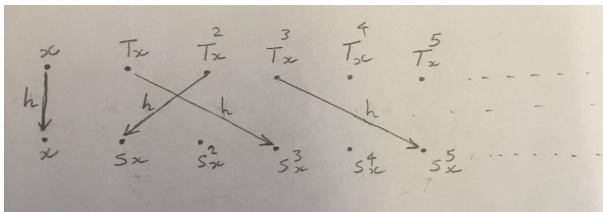 x Tx T²x T³x T⁴x T⁵x
h h h h
x Sx S²x S³x S⁴x S⁵x